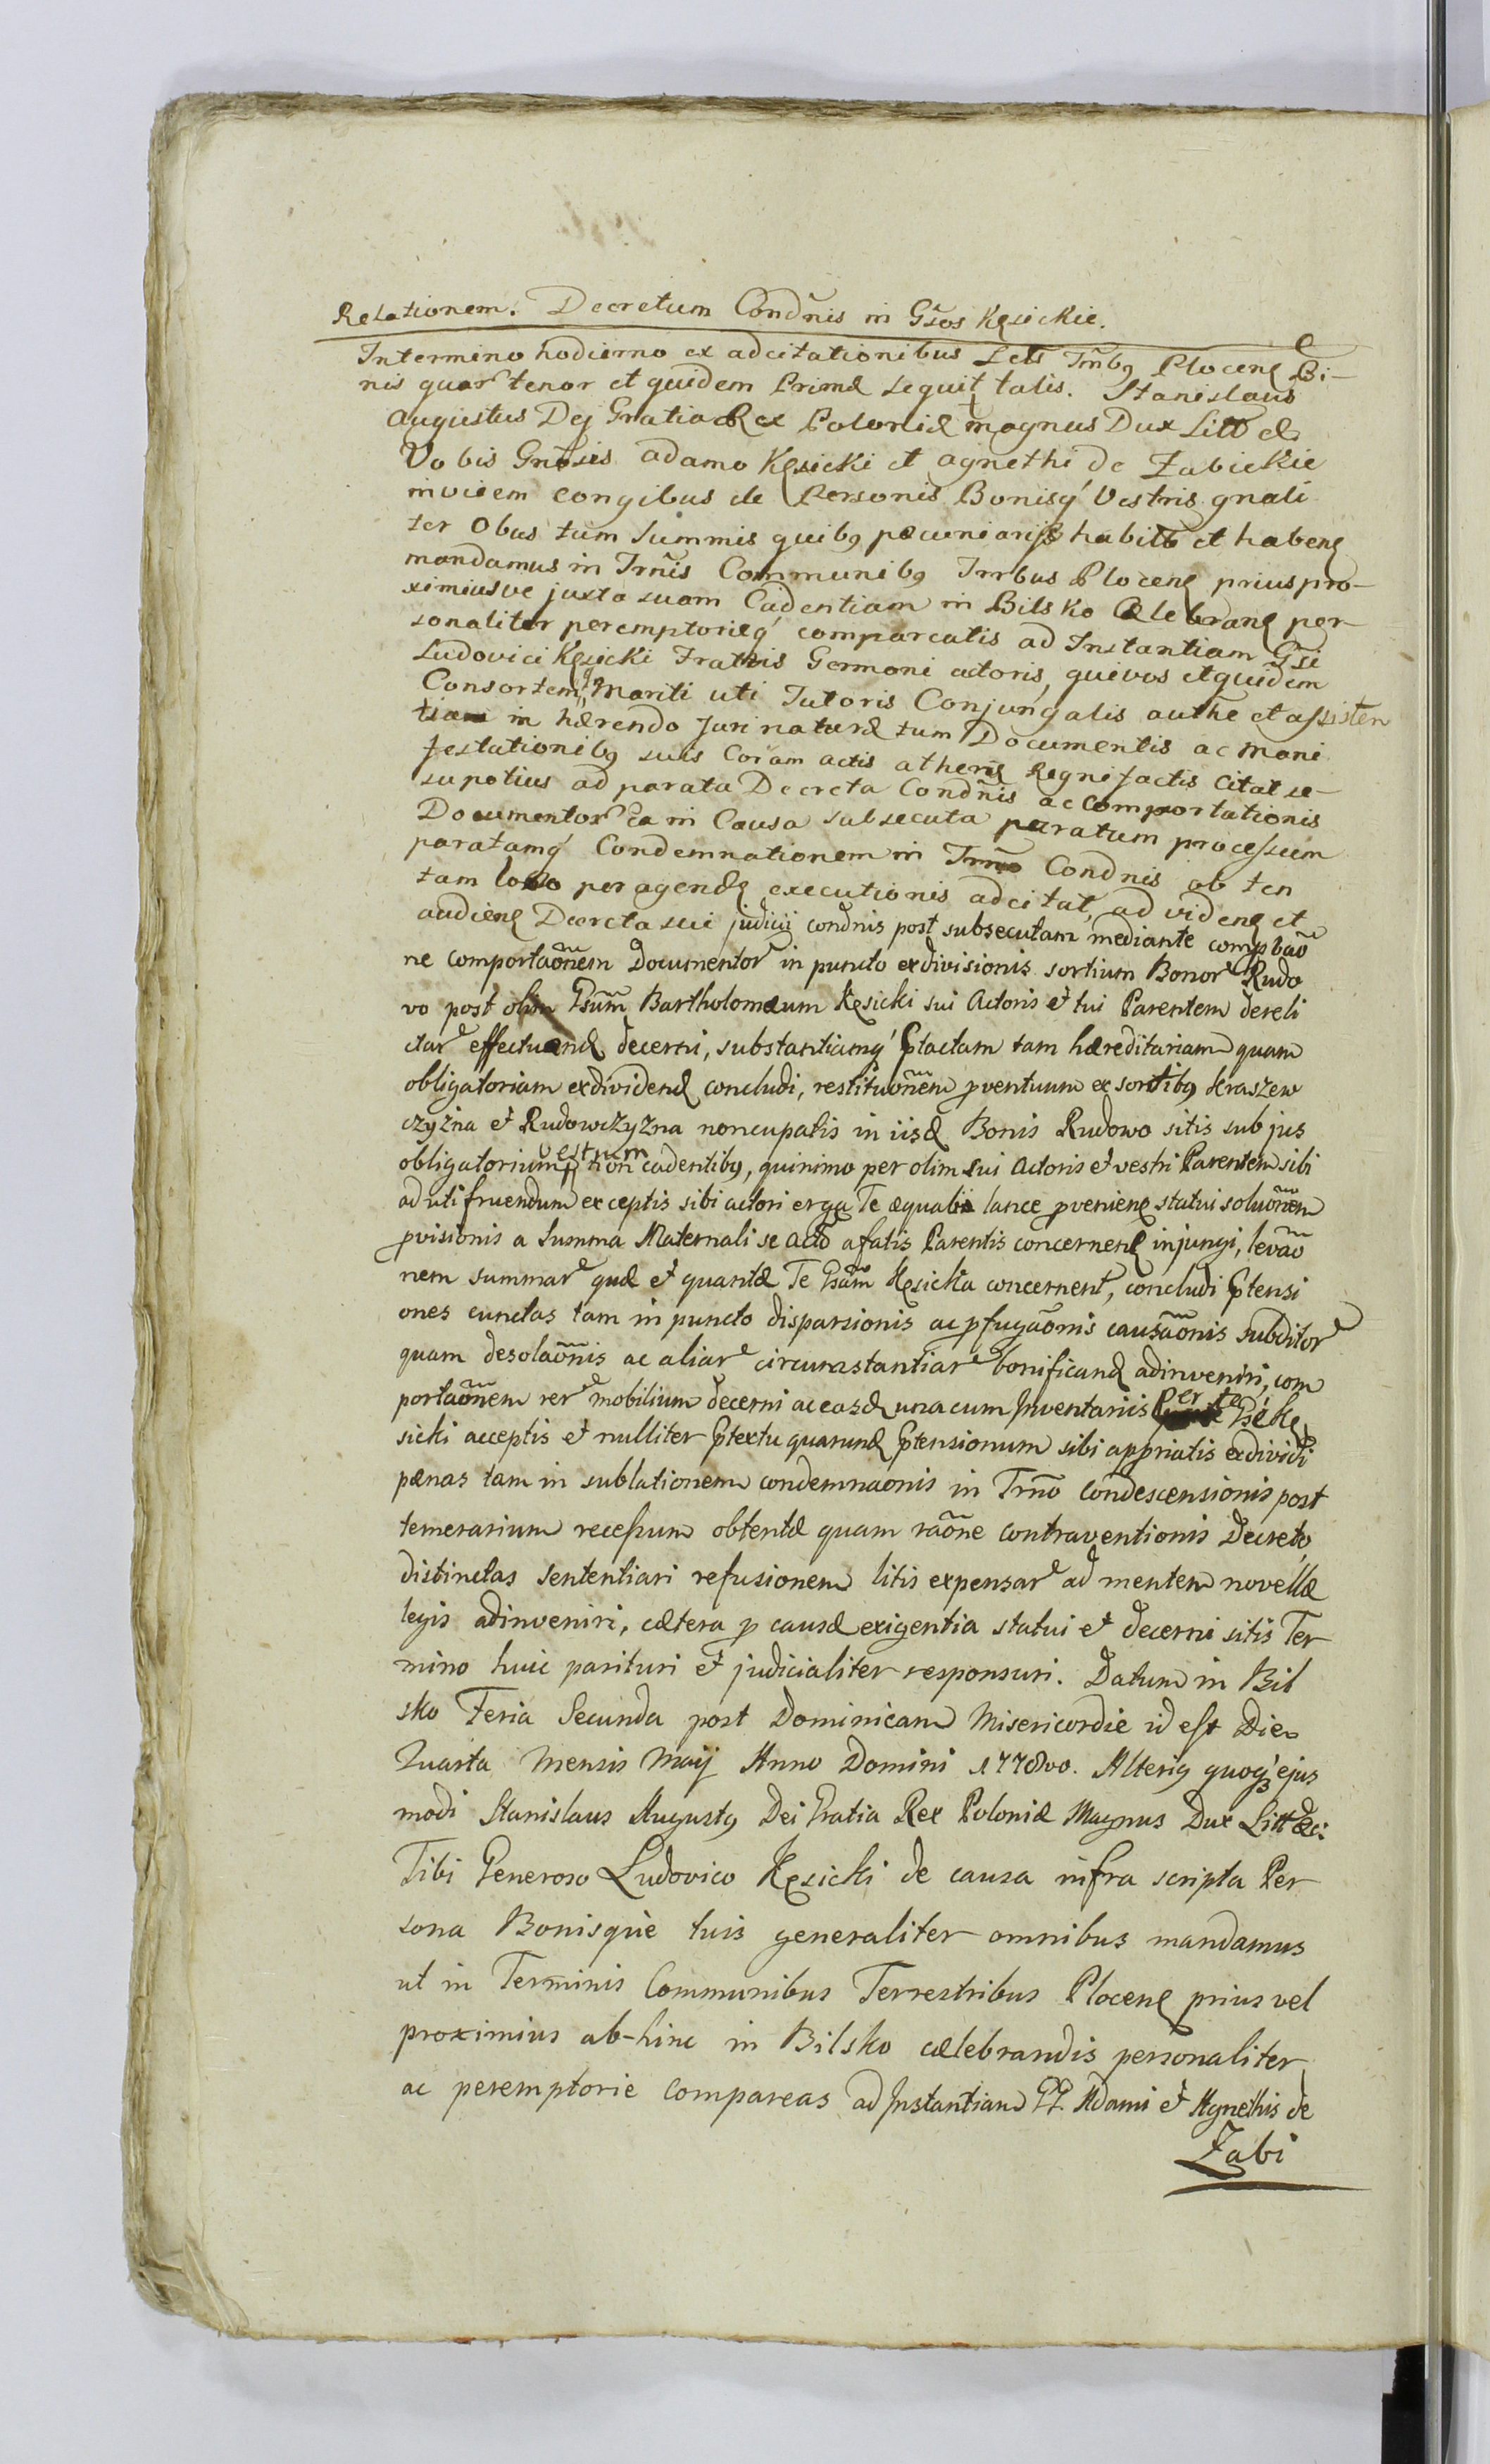 Relationem. Decretum Condnis in Gsos Kęsickie.
In termino hodierno ex adcitationibus Lctis Trrbꝯ Plocenꝭ Bi-
nis quar tenor et quidem Primæ sequit talis. Stanislaus
Augustus Dej Gratia Rex Poloniæ magnus Dux Litt &
Vobis Gnosis adamo Kęsicki et agnethi de Żabickie
invicem congibus de Personis Bonisq́ Vestris gnali
ter Obus tum Summis quibꝯ pæcuniariis habitis et habenꝭ
mandamus in Trnis Communibꝯ Trrbus Plocenꝭ prius pro-
ximiusve juxta suam Cadentiam in Bilsko Celebranꝭ per
sonaliter peremptorieq́ compareatis ad Instantiam Gsi
Ludovici Kęsicki Fratris Germani actoris, qui vos et quidem
Consortem Mariti uti Tutoris Conjungalis authe et assisten
tia in hærendo Juri naturæ tum Documentis ac Mani
festationibꝯ suis Coram actis athenꝭ Regni factis Citat se-
su potius ad parata Decreta Condnis ac Comportationis
Documentor ea in Causa subsecuta paratum processum
paratamq́ Condemnationem in Trno Condnis ob ten
tam loco peragendæ executionis adcitat, ad videnꝭ et
audienꝭ Decreta sui judicii condnis post subsecutam mediante compbao
ne comportaonem Documentor in puncto exdivisionis sortium Bonor Rudo
vo post olim Gsum Bartholomæum Kęsicki sui Actoris et tui Parentem dereli
ctar effectuandꝭ decerni, substantiamq́ Ptactam tam hæreditariam quam
obligatoriam exdividendꝭ concludi, restituonem pventuum ex sortibꝯ Kraszew
czyzna et Rudowczyzna noncupatis in iisdꝭ Bonis Rudowo sitis sub jus
obligatorium vestrum non cadentibꝯ, quinimo per olim sui Actoris et vestri Parentem sibi
ad uti fruendum exceptis sibi actori erga Te æquali lance pvenienꝭ statui soluonem
pvisionis a Summa Maternali se acto afatis Parentis concernenꝭ injungi, levao
nem summar quæ et quantæ Te Gsam Kęsicka concernent, concludi Ptensi
ones cunctas tam in puncto disparsionis ac pfugaonis causaonis subditor
quam desolaonis ac aliar circumstantiar bonificandꝭ adinveniri, com
portaonem rer mobilium decerni ac easdꝭ una cum Inventariis Per te Gse Kę
sicki acceptis et nulliter Ptextu quarundꝭ Ptensionum sibi appriatis exdividi
pænas tam in sublationem condemnaonis in Trno Condescensionis post
temerarium recessum obtentæ quam raone contraventionis Decreto,
distinctas sententiari refusionem litis expensar ad mentem novellæ
legis adinveniri, cætera p causæ exigentia statui et decerni sitis Ter
mino huic parituri et judicialiter responsuri. Datum in Bil
sko Feria Secunda post Dominicam Misericordie id est Die
Quarta Mensis Maij Anno Domini 1778vo. Alteriꝯ quoqꝫ ejus
modi Stanislaus Augustꝯ Dei Gratia Rex Poloniæ Magnus Dux Litt &c:
Tibi Generoso Ludovico Kęsicki de causa infra scripta Per
sona Bonisque tuis generaliter omnibus mandamus
ut in Terminis Communibus Terrestribus Plocenꝭ prius vel
proximius ab-hinc in Bilsko cælebrandis personaliter
ac peremptorie compareas ad Instantiam GG. Adami et Agnethis de
Żabi